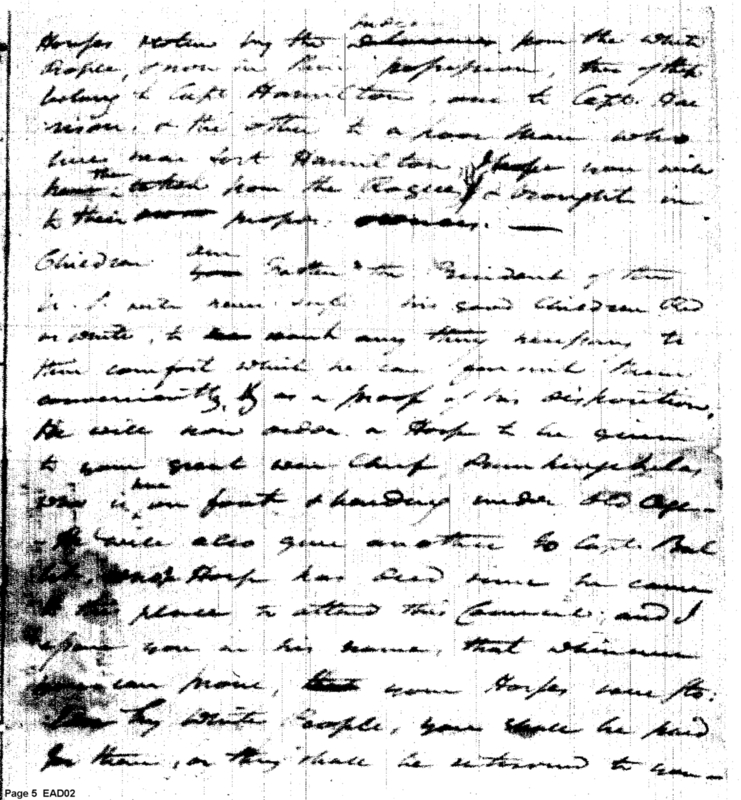 Indi
Horses stolen by the from the White
People, & now in their possession, two of them
belong to Capt Hamilton, one to Capt. Har
rison, & the other to a poor Man who
lives near Fort Hamilton, I hope you will
have them taken from the Rogues & brought in
to their proper owners. —
Children Our
Father the President of the
U. S. will never suffer his good Children Red
or white, to want any thing necessary to
their comfort which he can furnish them
conveniently, & as a proof of his disposition,
He will now order a Horse to be given
to your great war Chief Buckingehelas,
who is here on foot & standing under Old Age —
He will also give another to Capt. Bul
let, whose Horse has died since he came
to this place to attend this Council; and I
assure you in his name, that whenever
you can prove, that your Horses were sto:
len by White People, you shall be paid
for them, or they shall be returned to you —
Page 5 EAD02